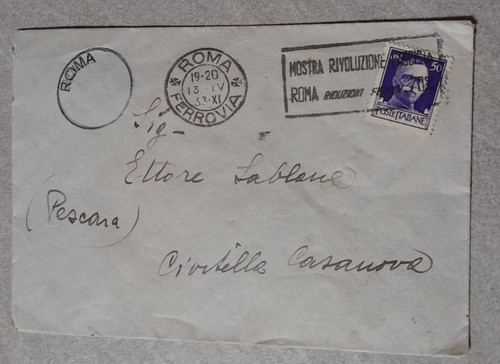 ROMA
ROMA
19-20
13·IV
33·XI
FERROVIA
MOSTRA RIVOLUZIONE
ROMA RIDUZIONI
50
POSTE ITALIANE
Sig-
Ettore
(Pescara)
Civitella Casanova